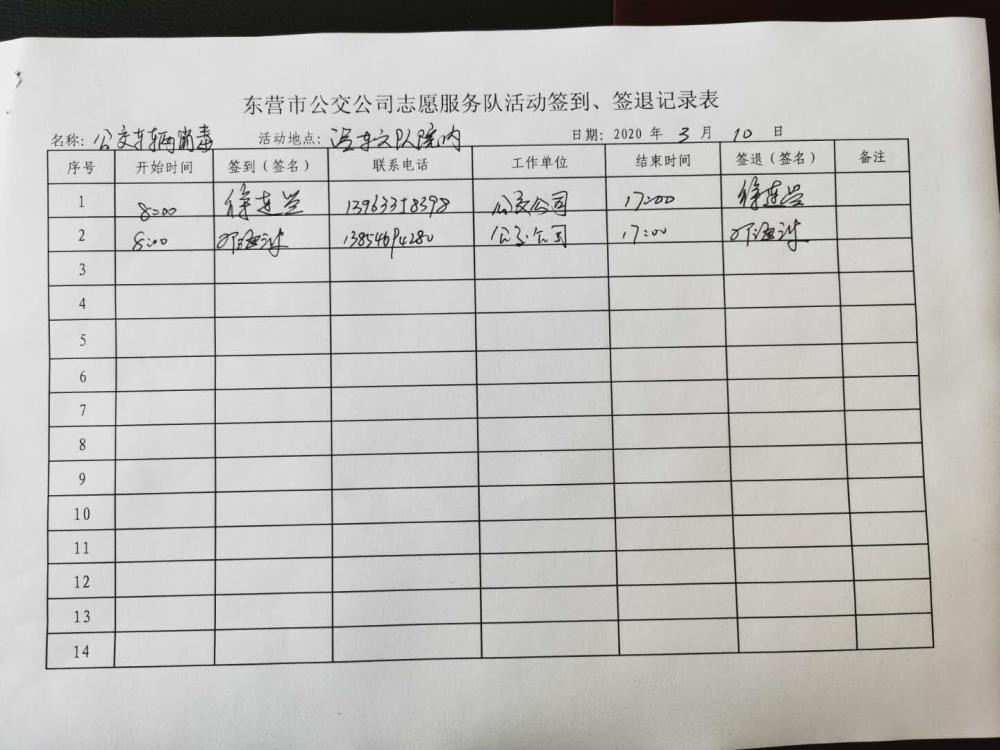 东营市公交公司志愿服务队活动签到、签退记录表
名称: 公交车辆消毒 活动地点: 汽车大队院内 日期: 2020 年 3 月 10 日
序号 开始时间 签到(签名) 联系电话 工作单位 结束时间 签退(签名) 备注
1 8:00 徐连 13963318398 公交公司 17:00 徐连
2 8:00 13854694280 公交公司 17:00
3
4
5
6
7
8
9
10
11
12
13
14